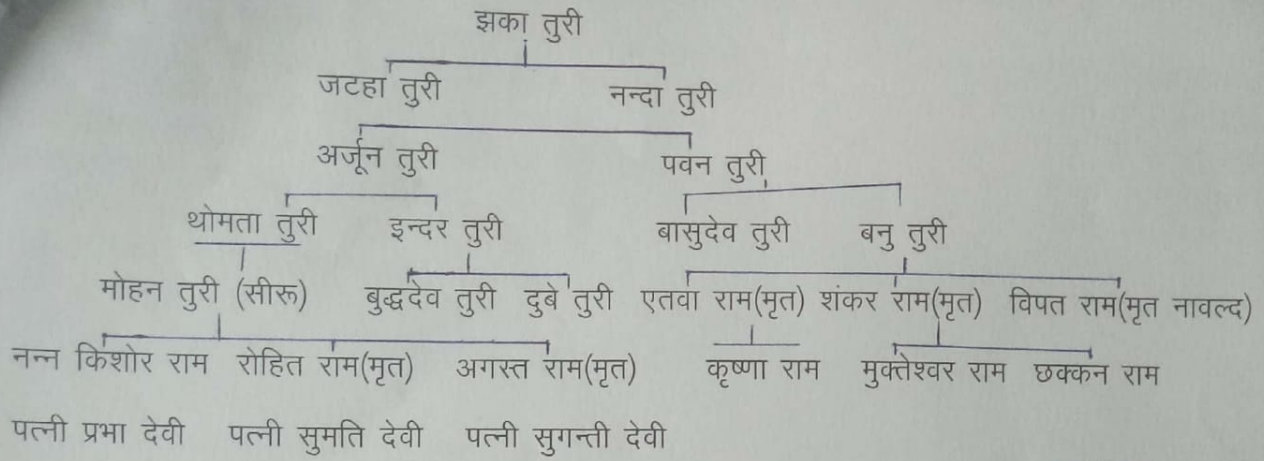 झका तुरी
जटहा तुरी नन्दा तुरी
अर्जून तुरी पवन तुरी
थोमता तुरी इन्दर तुरी बासुदेव तुरी बनु तुरी
मोहन तुरी (सीरू) बुद्धदेव तुरी दुबे तुरी एतवा राम(मृत) शंकर राम(मृत) विपत राम(मृत नावल्द)
नन्न किशोर राम रोहित राम(मृत) अगस्त राम(मृत) कृष्णा राम मुक्तेश्वर राम छक्कन राम
पत्नी प्रभा देवी पत्नी सुमति देवी पत्नी सुगन्ती देवी